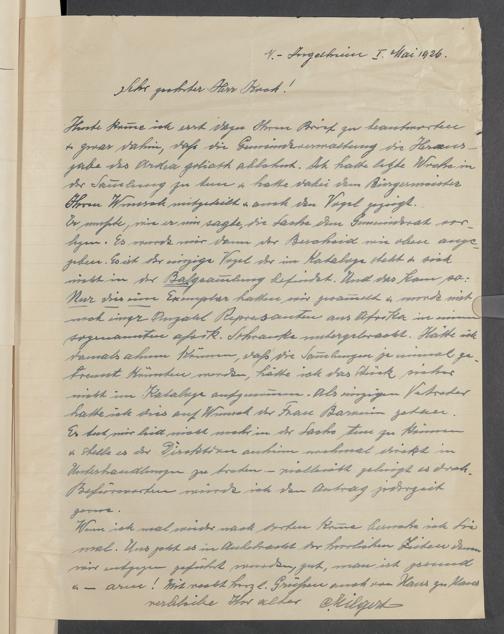 N.- Ingelheim I. Mai 1926.
Sehr geehrter Herr Koch!
Heute komme ich erst dazu Ihren Brief zu beantworten
u. zwar dahin, daß die Gemeindeverwaltung die Heraus-
gabe des Ardea goliath ablehnt. Ich hatte letzte Woche in
der Sammlung zu tun u. hatte dabei dem Bürgermeister
Ihren Wunsch mitgeteilt u. auch den Vogel gezeigt.
Er mußte, wie er mir sagte, die Sache dem Gemeinderat vor-
legen. Es wurde mir dann der Bescheid wie oben ange-
geben. Es ist der einzige Vogel der im Kataloge steht u. sich
nicht in der Balgsammlung befindet. Und das kam so:
Nur dies eine Exemplar hatten wir gesammelt u. wurde mit
noch einer Anzahl Repräsentanten aus Afrika in einem
sogenannten afrik. Schranke untergebracht. Hätte ich
damals ahnen können, daß die Sammlungen je einmal ge-
trennt könnten werden, hätte ich das Stück sicher
nicht im Kataloge aufgenommen. Als einzigen Vertreter
hatte ich dies auf Wunsch der Frau Baronin getan.
Es tut mir leid nicht mehr in der Sache tun zu können
u. stelle es der Direktion anheim nochmal direkt in
Unterhandlungen zu treten - vielleicht gelingt es doch.
Befürworten würde ich den Antrag jederzeit
gerne.
Wenn ich mal wieder nach dorten komme besuche ich Sie
mal. Uns geht es in Anbetracht der herrlichen Zeiten denen
wir entgegen geführt wurden, gut, man ist gesund
u. — arm! Mit recht herzl. Grüßen auch von Haus zu Haus
verbleibe Ihr alter C. Hilgert